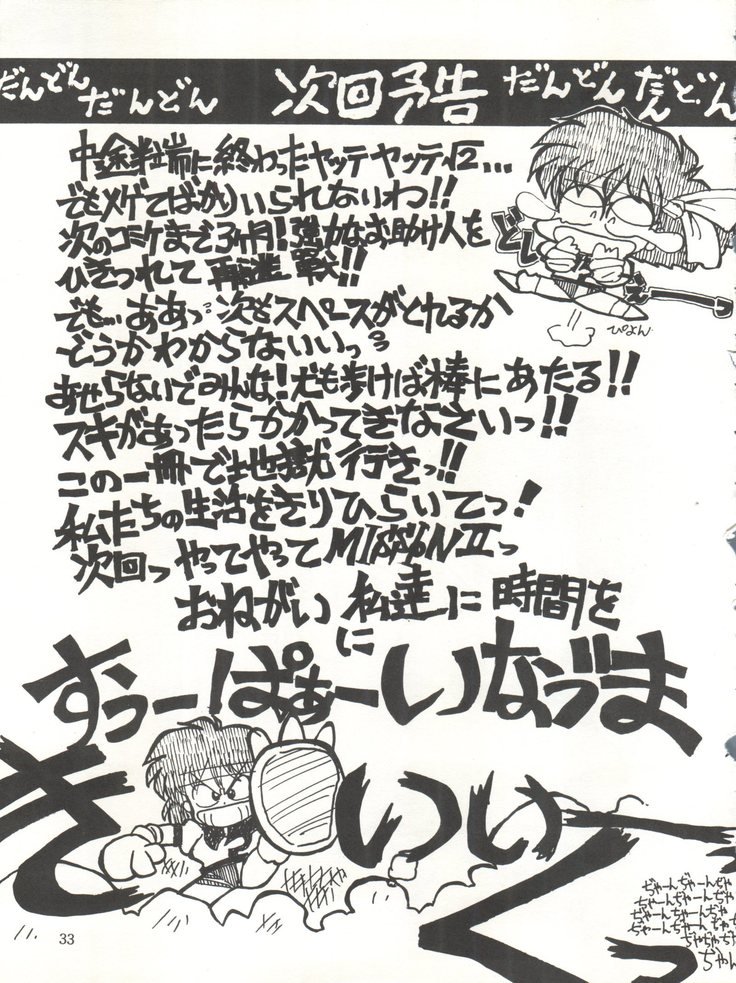 だんどん
だんどん
次回予告
だんどん
だんどん
中途半端に終わったヤッテヤッテ√2…
でもメゲてばかりいられないわ!!
次のコミケまで3ヶ月!強力なお助け人を
ひきつれて再挑戦!!
でも…ああっ次もスペースがとれるか
どうかわからないいっ
あせらないでみんな!犬も歩けば棒にあたる!!
スキがあったらかかってきなさいっ!!
この一冊で地獄行きっ!!
私たちの生活をきりひらいてっ!
次回っやってやってMISSIONⅡっ
おねがい私達に時間を
に
すっーぱぁーいなづま
きいっいくっ
どん
ぴよん
ぢゃーんぢゃーんぢゃ
ぢゃーんぢゃーん
ぢゃーんぢゃーんぢゃ
ぢゃーんぢゃーんぢゃ
ぢゃぢゃぢゃ
ぢゃん
33